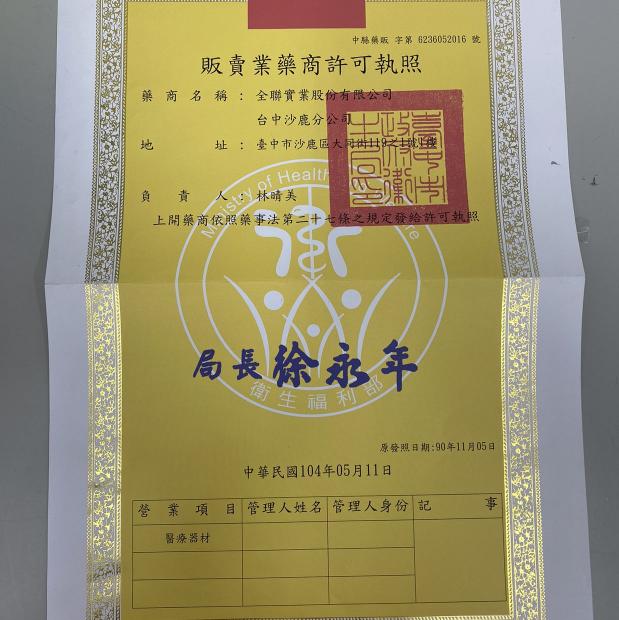 中縣藥販 字第 6236052016 號
販賣業藥商許可執照
藥商名稱：全聯實業股份有限公司
台中沙鹿分公司
地址：臺中市沙鹿區大同街119之1號1樓
負責人：林晴美
上開藥商依照藥事法第二十七條之規定發給許可執照
Ministry of Health
局長 徐永年
衛生福利部
原發照日期:90年11月05日
中華民國104年05月11日
營業項目 管理人姓名 管理人身份 記事
醫療器材